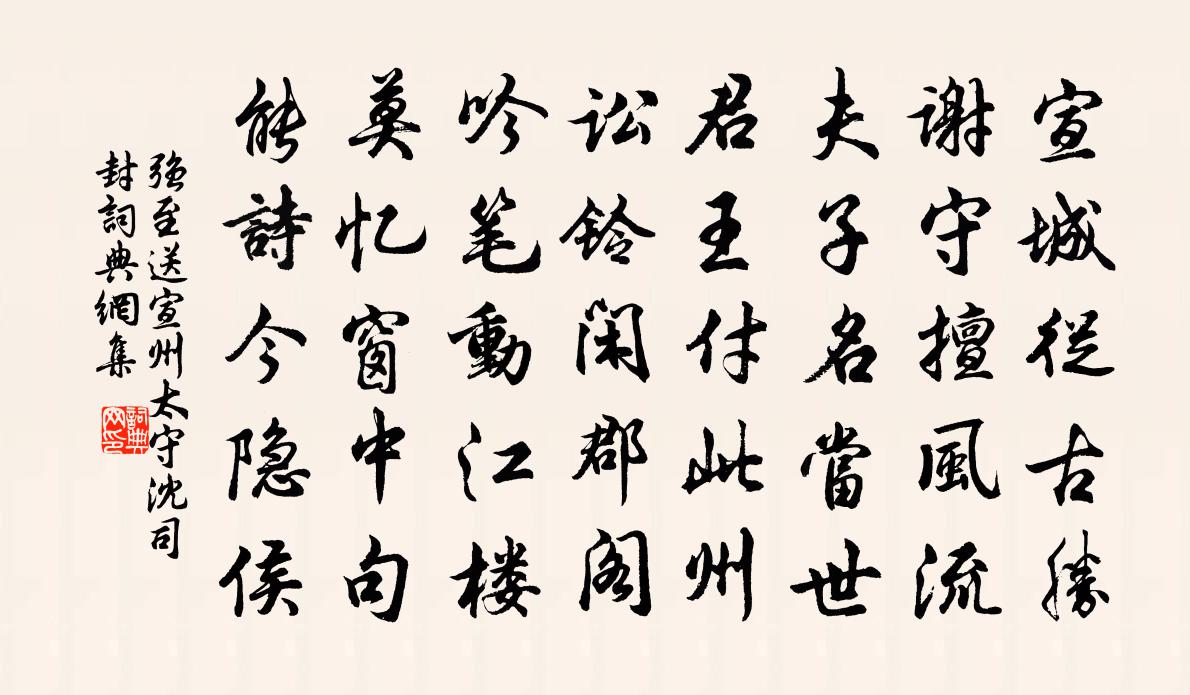 宣城從古勝
謝守擅風流
夫子名當世
君王付此州
訟鈴閑郡閣
吟笔動江楼
莫忆窗中句
能詩今隐侯
强至送宣州太守沈司
封詞典網集
詞典网印